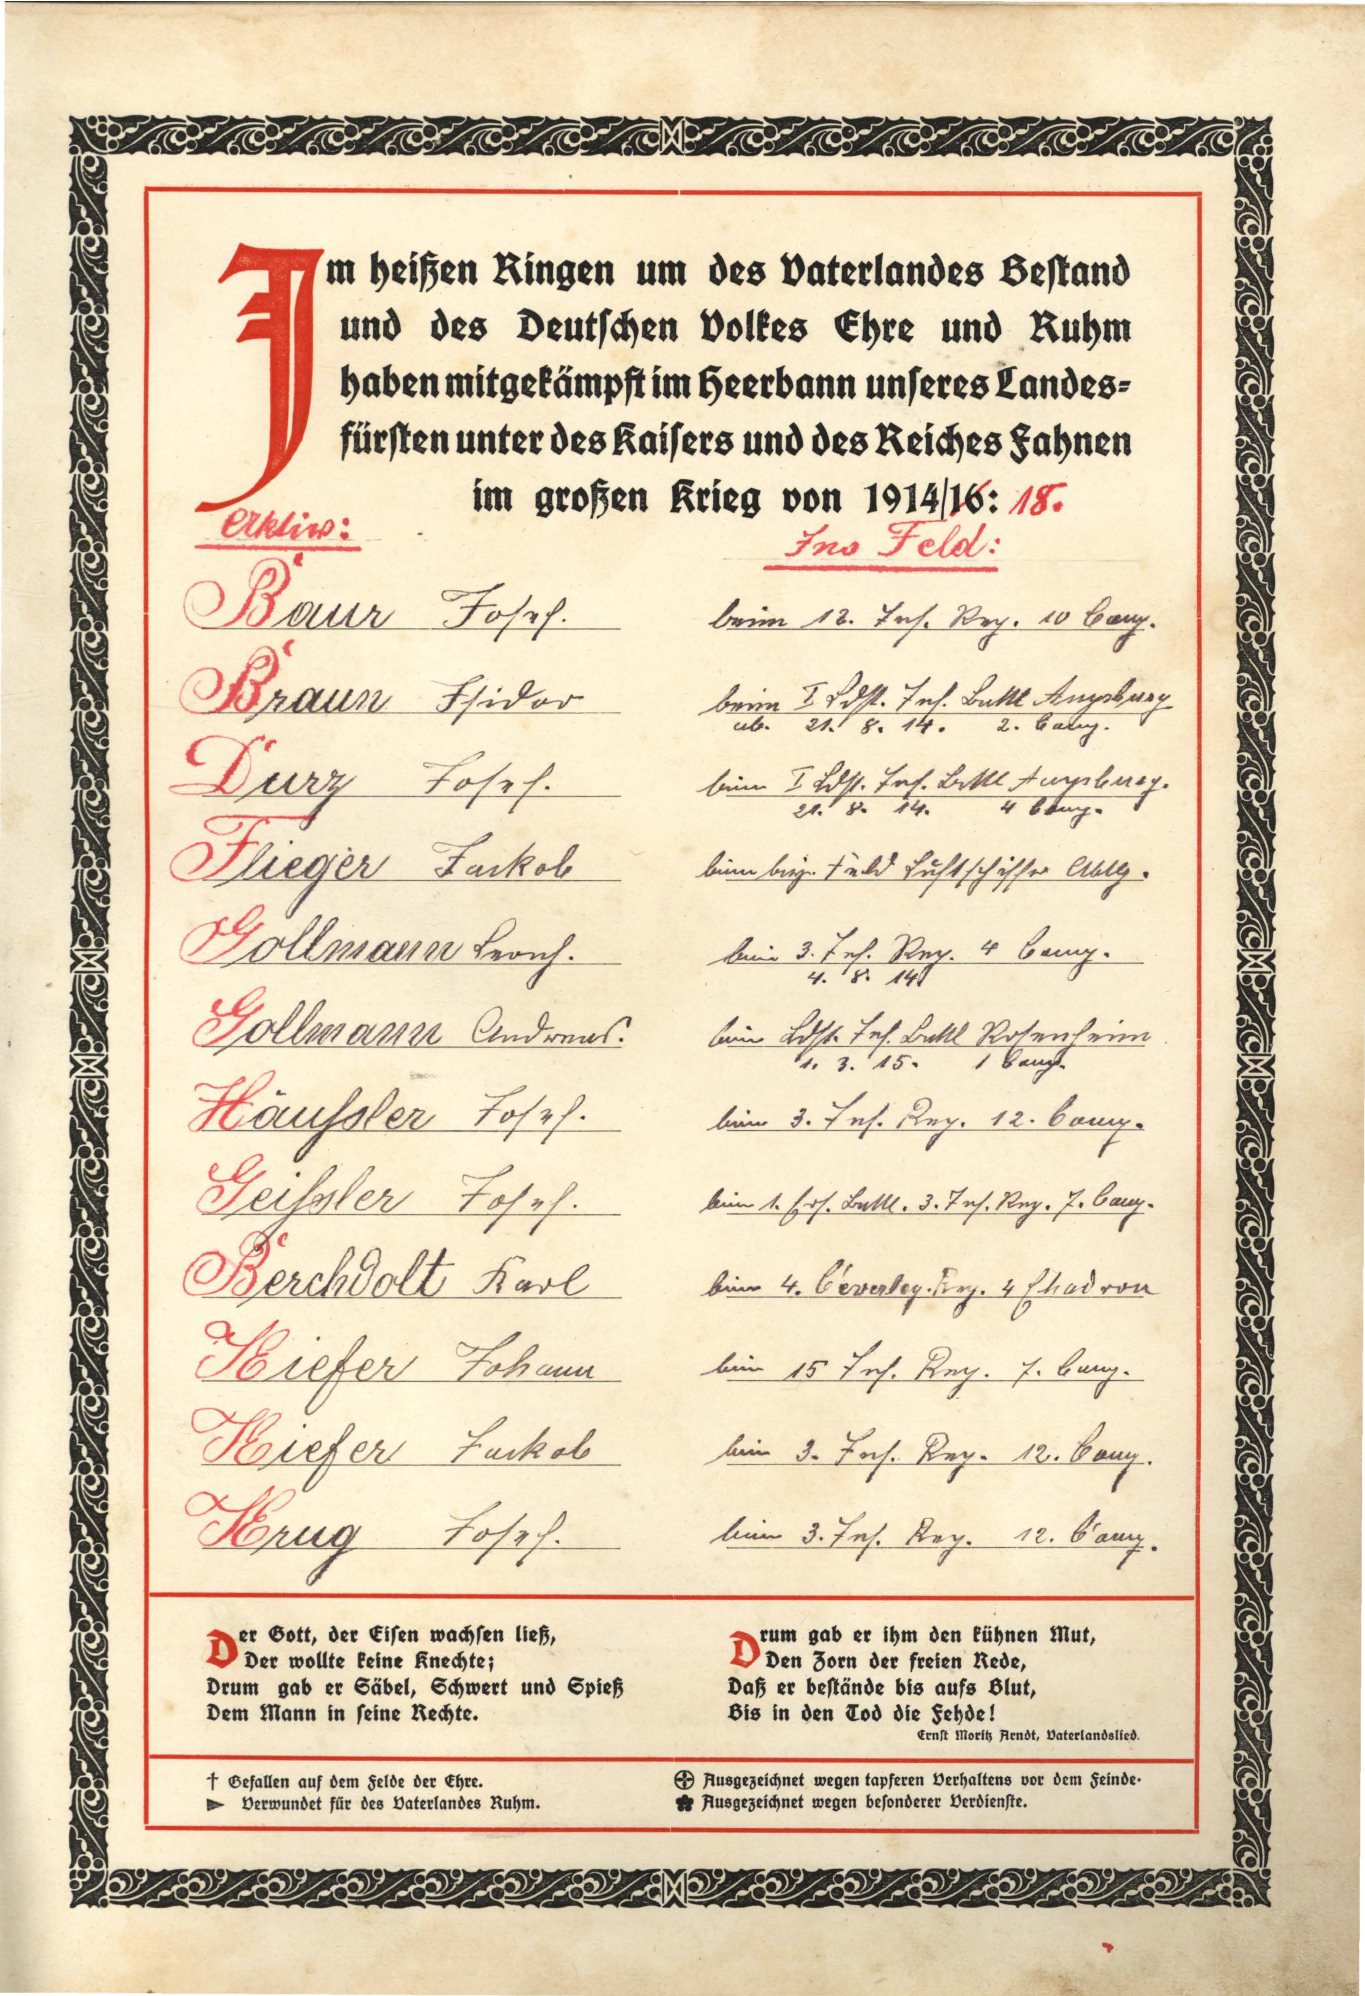 Im heißen Ringen um des Vaterlandes Bestand
und des Deutschen Volkes Ehre und Ruhm
haben mitgekämpft im Heerbann unseres Landes-
fürsten unter des Kaisers und des Reiches Fahnen
im großen Krieg von 1914/16: 18.
Aktiv: Ins Feld:
Baur Josef. beim 12. Inf. Reg. 10 Comp.
Braun Isidor beim I Ldst. Inf. Batl Augsburg
ab. 21. 8. 14. 2. Comp.
Durz Josef. beim I Ldst. Inf. Batl Augsburg.
21. 8. 14. 4 Comp.
Flieger Jackob beim Feld Luftschiffer Abtlg.
Gollmann Leonh. beim 3. Inf. Reg. 4 Comp.
4. 8. 14
Gollmann Andreas. beim Ldst. Inf. Batl Rosenheim
1. 3. 15. 1 Comp.
Häußler Josef. beim 3. Inf. Reg. 12. Comp.
Geißler Josef. beim 1. Ers. Batl. 3. Inf. Reg. 7. Comp.
Berchdolt Karl beim 4. Reg. 4
Kiefer Johann beim 15 Inf. Reg. 7. Comp.
Kiefer Jackob beim 3. Inf. Reg. 12. Comp.
Krug Josef. beim 3. Inf. Reg. 12. Comp.
Der Gott, der Eisen wachsen ließ,
Der wollte keine Knechte;
Drum gab er Säbel, Schwert und Spieß
Dem Mann in seine Rechte.
Drum gab er ihm den kühnen Mut,
Den Zorn der freien Rede,
Daß er bestände bis aufs Blut,
Bis in den Tod die Fehde!
Ernst Moritz Arndt, Vaterlandslied.
† Gefallen auf dem Felde der Ehre.
Verwundet für des Vaterlandes Ruhm.
Ausgezeichnet wegen tapferen Verhaltens vor dem Feinde.
Ausgezeichnet wegen besonderer Verdienste.